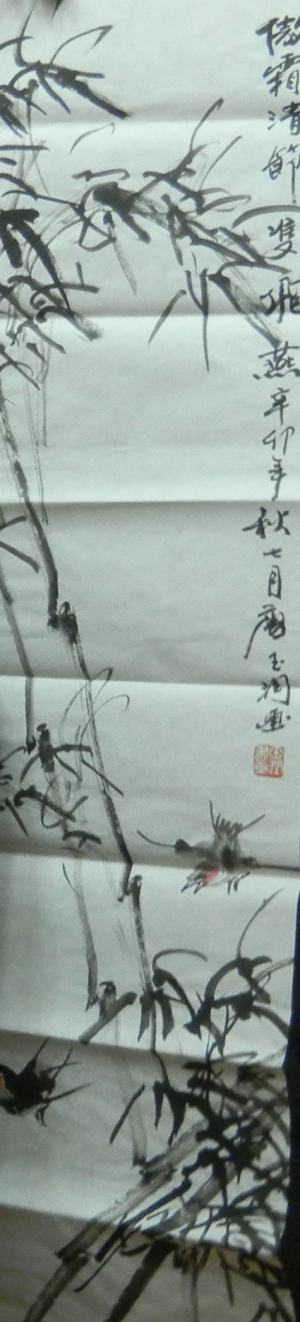 傲霜清節雙飛燕辛卯年秋七月廖玉潤畫